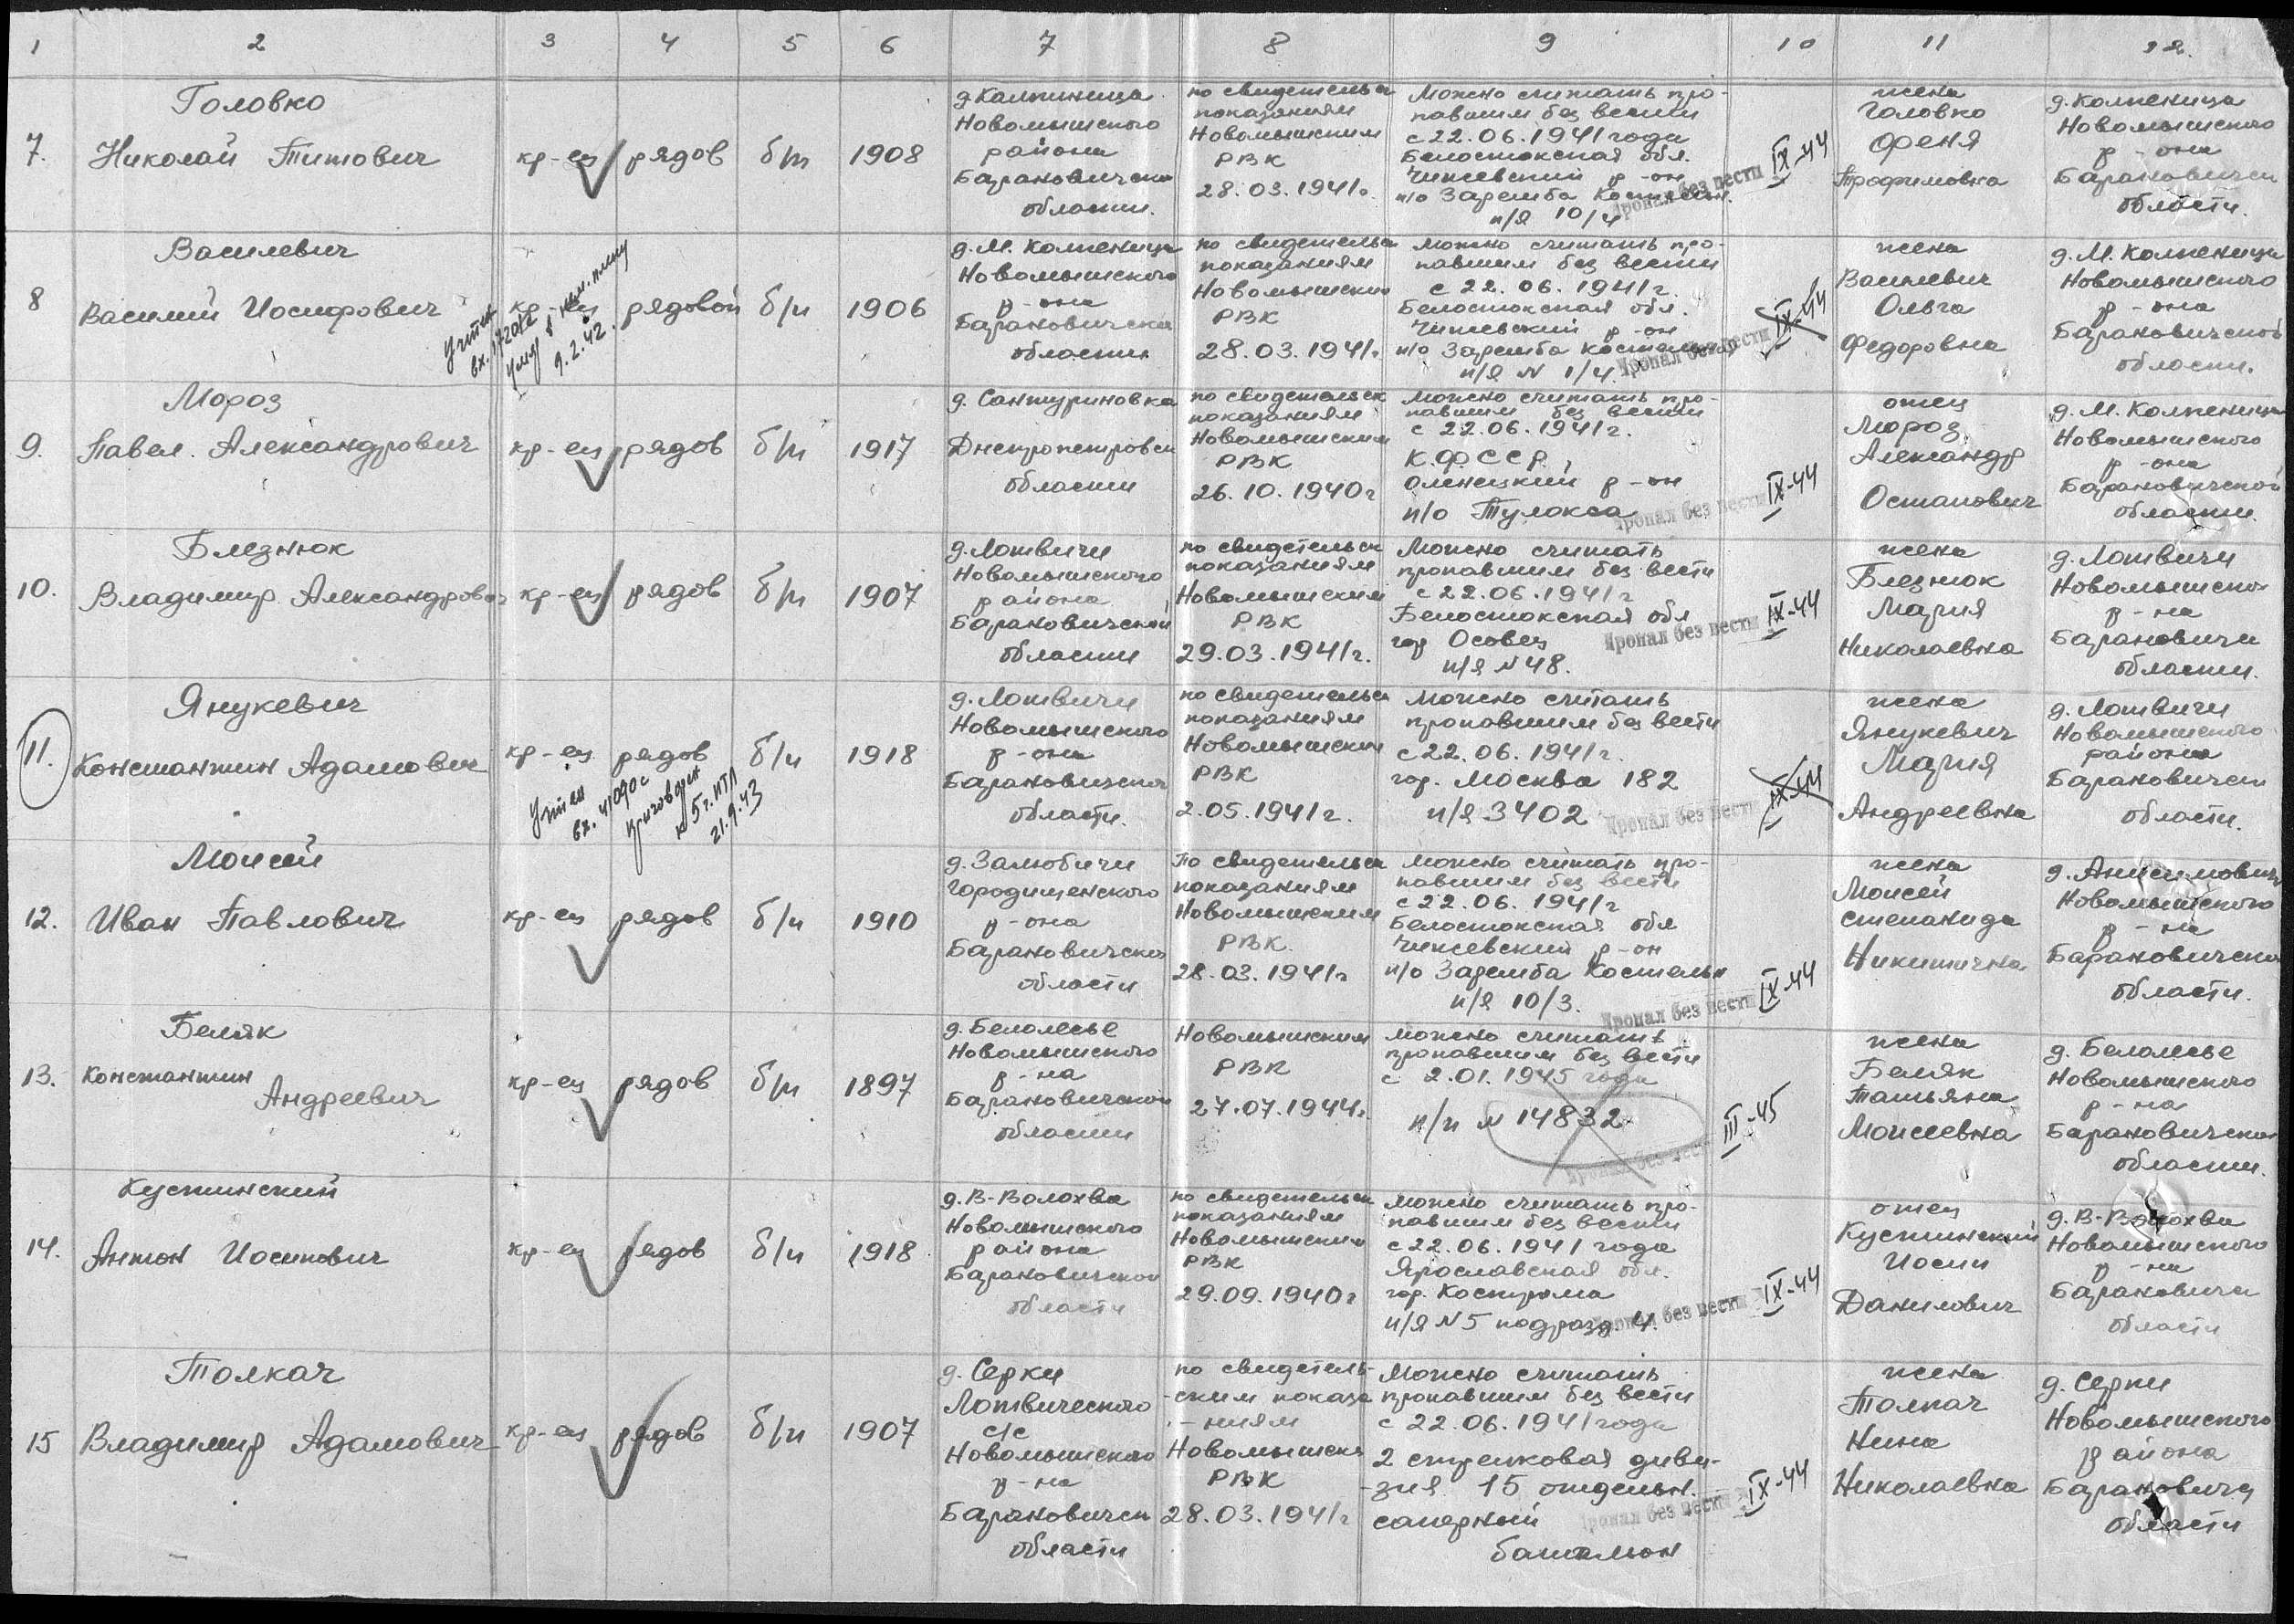 1 2 3 4 5 6 7 8 9 10 11 12.
7.
Головко
Николай Титович
кр-ец
рядов
б/п
1908
д Колпиница
Новомышского
района
Барановичско
области.
по свидетельск
показаниям
Новомышским
РВК
28.03.1941г.
Можно считать про-
павшим без вести
с 22.06.1941 года
Белостокская обл.
Чижевский р-он
п/о Заремба Костельн.
п/я 10/4
Пропал без вести
IX-44
жена
Головко
Феня
Трофимовна
д. Колпеница
Новомышского
р-она
Барановичск
области.
8
Василевич
Василий Иосифович
кр-ец
Учтен
вх. 17201с
умер в нем. плену
9.2.42.
рядовой
б/п
1906
д. М. Колпеница
Новомышского
р-она
Барановичска
области
по свидетельс
показаниям
Новомышским
РВК
28.03.1941г.
Можно считать про-
павшим без вести
с 22.06.1941г.
Белостокская обл.
Чижевский р-он
п/о Заремба Костельн
п/я N 1/4.
Пропал без вести
IX-44
жена
Василевич
Ольга
Федоровна
д. М. Колпеница
Новомышского
р-она
Барановичской
области.
9.
Мороз
Павел. Александрович
кр-ец
рядов
б/п
1917
д. Сантуриновка
Днепропетровск
области
по свидетельск
показаниям
Новомышским
РВК
26.10.1940г
Можно считать про-
павшим без вести
с 22.06.1941г.
К.Ф.ССР,
Олонецкий р-он
п/о Тулокса
Пропал без вести
IX-44
отец
Мороз
Александр
Остапович
д. М. Колпеница
Новомышского
р-она
Барановичской
области.
10.
Блезнюк
Владимир Александров
кр-ец
рядов
б/п
1907
д. Лотвичи
Новомышского
района
Барановичской
области
по свидетельск
показаниям
Новомышским
РВК
29.03.1941г.
Можно считать
пропавшим без вести
с 22.06.1941г
Белостокская обл
гор Осовец
п/я N 48.
Пропал без вести
IX-44
жена
Блезнюк
Мария
Николаевна
д. Лотвичи
Новомышско-
р-на
Барановичи
области.
11.
Янукевич
Константин Адамович
кр-ец
рядов
Учтен
вх. 41090с
приговорен
к 5 г. ИТЛ
21.9.43
б/п
1918
д. Лотвичи
Новомышского
р-она
Барановичско
области.
по свидетельск
показаниям
Новомышским
РВК
2.05.1941г.
Можно считать
пропавшим без вести
с 22.06.1941г.
гор. Москва 182
п/я 3402
Пропал без вести
IX-44
жена
Янукевич
Мария
Андреевна
д. Лотвичи
Новомышского
района
Барановичск
области.
12.
Моисей
Иван Павлович
кр-ец
рядов
б/п
1910
д. Залюбичи
Городищенского
р-она
Барановичско
области
По свидетельск
показаниям
Новомышским
РВК.
28.03.1941г
Можно считать про-
павшим без вести
с 22.06.1941г
Белостокская обл
Чижевский р-он
п/о Заремба Костельн
п/я 10/3.
Пропал без вести
IX-44
жена
Моисей
Степанида
Никитична
д. Анисимовичи
Новомышского
р-на
Барановичско
области.
13.
Беляк
Константин
Андреевич
кр-ец
рядов
б/п
1897
д. Белолесье
Новомышского
р-на
Барановичской
области
Новомышским
РВК
27.07.1944г.
Можно считать
пропавшим без вести
с 2.01.1945 года
п/п N 14832
Пропал без вести
III-45
жена
Беляк
Татьяна
Моисеевна
д. Белолесье
Новомышского
р-на
Барановичско
области.
14.
Кустинский
Антон Иосипович
кр-ец
рядов
б/п
1918
д. В-Волохва
Новомышского
района
Барановичской
области
по свидетельск
показаниям
Новомышским
РВК
29.09.1940г
Можно считать про-
павшим без вести
с 22.06.1941 года
Ярославская обл.
гор. Кострома
п/я N 5 подразд. 4.
Пропал без вести
IX-44
отец
Кустинский
Иосип
Данилович
д. В-Волохва
Новомышского
р-на
Барановичи
области
15
Толкач
Владимир Адамович
кр-ец
рядов
б/п
1907
д. Серки
Лотвического
с/с
Новомышского
р-на
Барановичск
области
по свидетель-
-ским показа
-ниям
Новомышск
РВК
28.03.1941г
Можно считать
пропавшим без вести
с 22.06.1941 года
2 стрелковая диви-
-зия. 15 отдельн.
саперный
батальон
Пропал без вести
IX-44
жена
Толкач
Нина
Николаевна
д. Серки
Новомышского
района
Барановичи
области